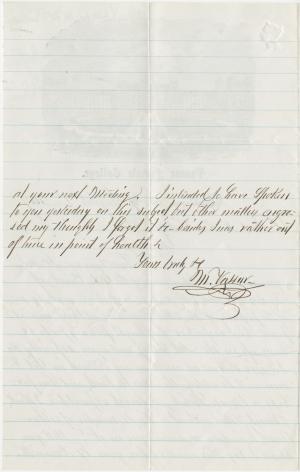 at your next Meeting, I intended to have Spoken
to you yesterday on this subject but other matters engros-
sed my thoughts I forgot it be-sides I was rather out
of tune in point of health &
Yours truly &
M. Vassar